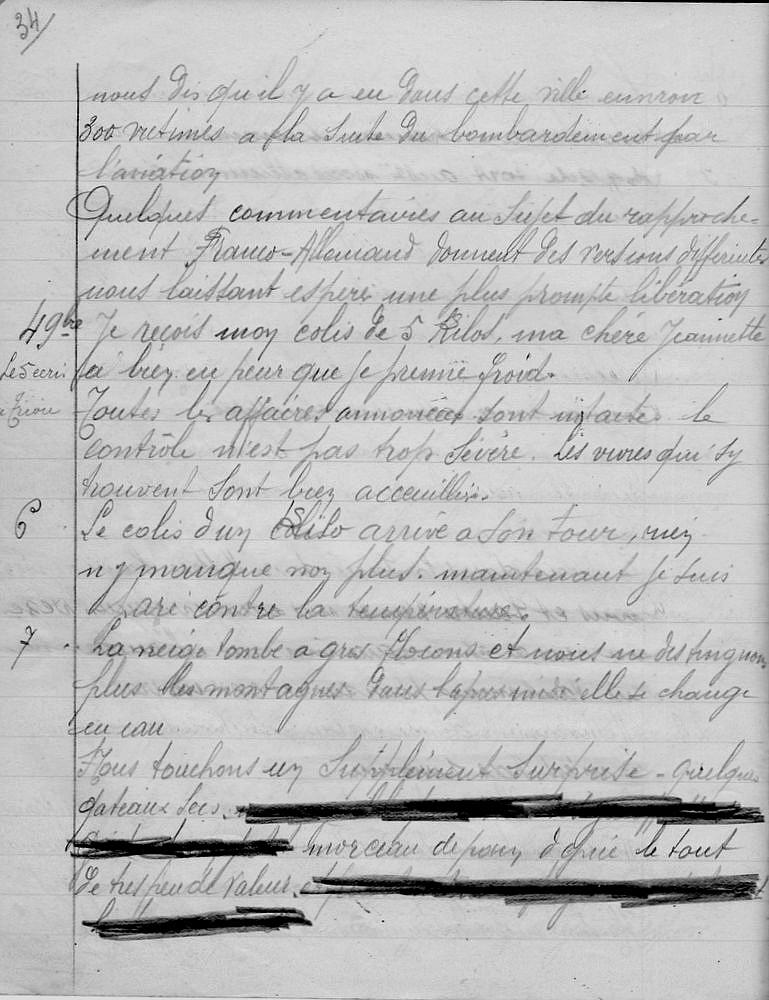 34/
nous dis qu'il y a eu dans cette ville environ
300 victimes a la suite du bombardement par
l'aviation
Quelques commentaires au sujet du rapproche-
ment Franco-Allemand donnent des versions differentes
nous laissant esperer une plus prompte libération
4 9bre Je reçois mon colis de 5 Kilos, ma chére Jeannette
Le 5 ecris a bien eu peur que je prenne froid.
a Toutes les affaires annoncées sont intactes le
contrôle n'est pas trop sévère. Les vivres qui s'y
trouvent sont bien acceuillis.
6 Le colis d'un Kilo arrive a son tour, rien
n'y manque non plus. maintenant je suis
paré contre la température.
7 La neige tombe a gros flocons et nous ne destinguons
plus les montagnes dans l'apres midi elle se change
en eau
Nous touchons un Supplément Surprise - quelques
gateaux secs.
morceau de pain d'épice le tout
de tres peu de valeur.